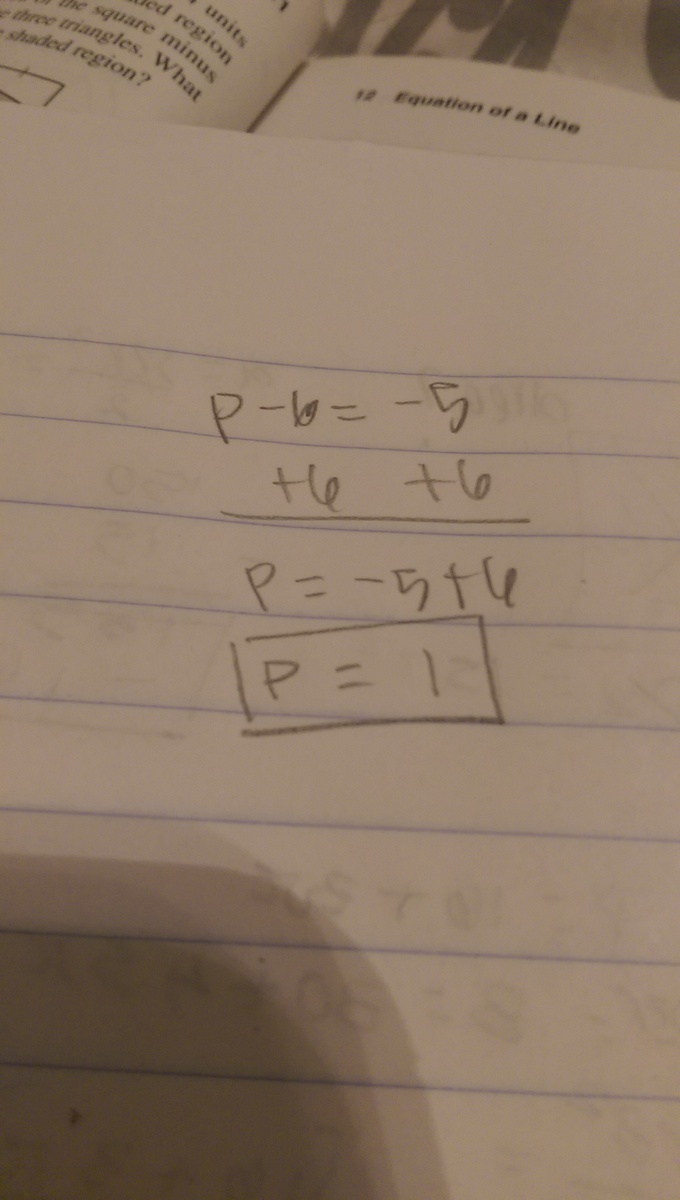 units
ded region
of the square minus
three triangles. What
shaded region?
12 Equation of a Line
P - 6 = -5
+6 +6
P = -5+6
P = 1